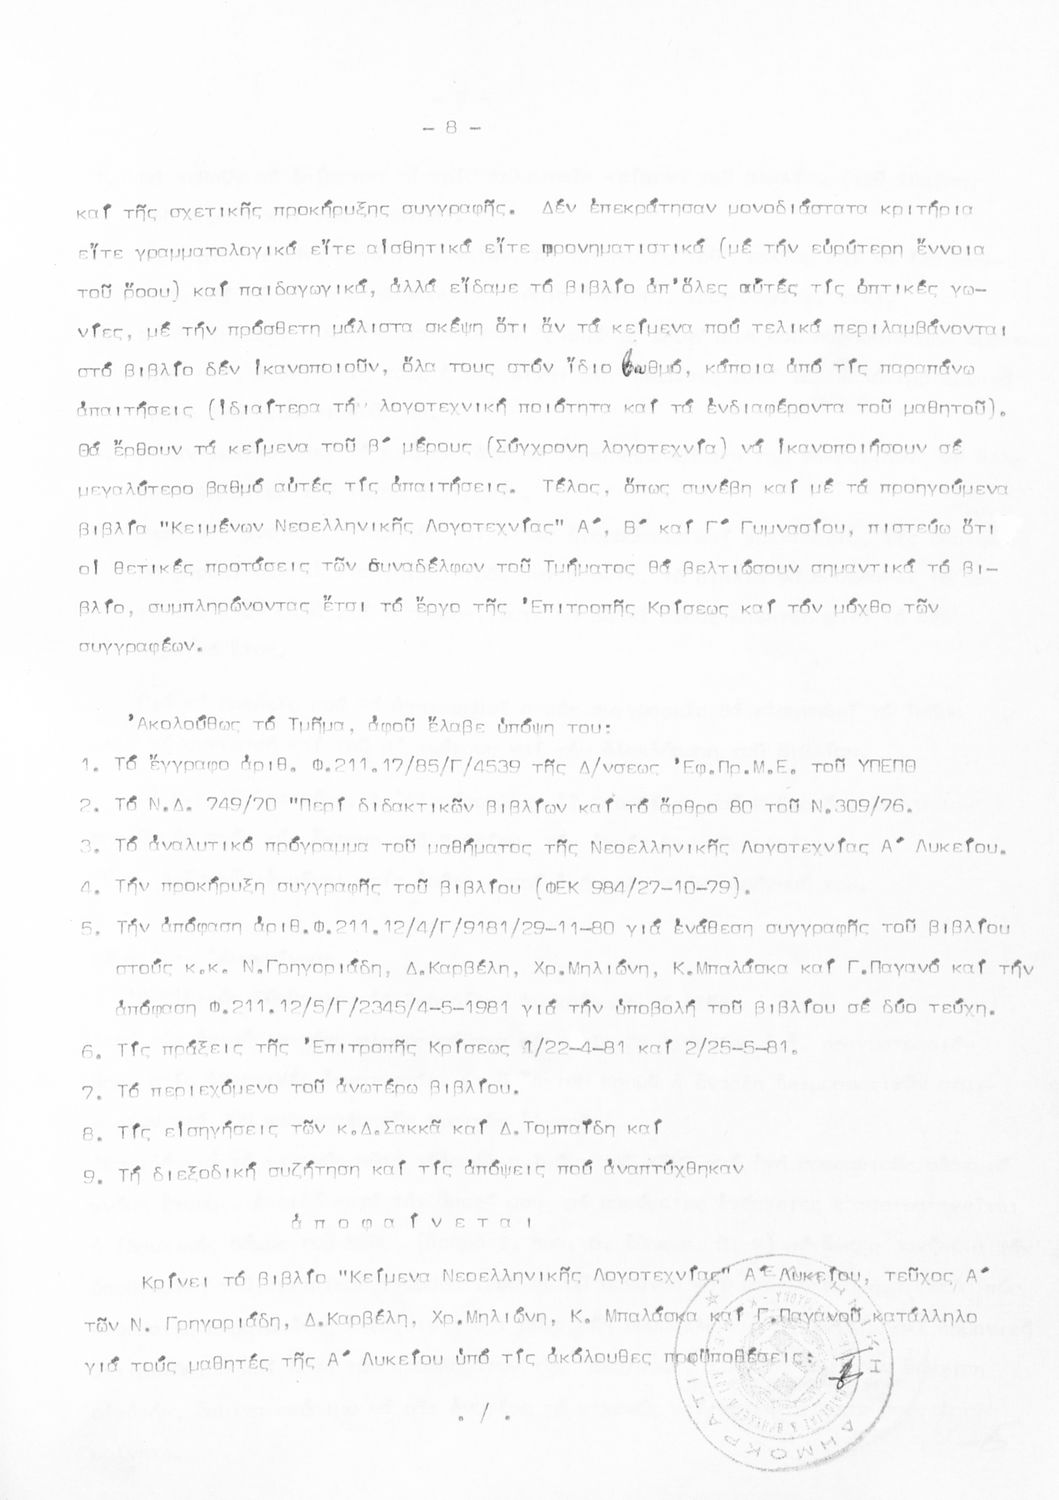 - 8 -
καί τῆς σχετικῆς προκήρυξης συγγραφῆς. Δέν ἐπεκράτησαν μονοδιάστατα κριτήρια
εἴτε γραμματολογικά εἴτε αἰσθητικά εἴτε φρονηματιστικά (μέ τήν εὐρύτερη ἔννοια
τοῦ ὅρου) καί παιδαγωγικά, ἀλλά εἴδαμε τό βιβλίο ἀπ'ὅλες αὐτές τίς ὀπτικές γω-
νίες, μέ τήν πρόσθετη μάλιστα σκέψη ὅτι ἄν τά κείμενα πού τελικά περιλαμβάνονται
στό βιβλίο δέν ἱκανοποιοῦν, ὅλα τους στόν ἴδιο βαθμό, κάποια ἀπό τίς παραπάνω
ἀπαιτήσεις (ἰδιαίτερα τή λογοτεχνική ποιότητα καί τά ἐνδιαφέροντα τοῦ μαθητοῦ).
Θά ἔρθουν τά κείμενα τοῦ β' μέρους (Σύγχρονη λογοτεχνία) νά ἱκανοποιήσουν σέ
μεγαλύτερο βαθμό αὐτές τίς ἀπαιτήσεις. Τέλος, ὅπως συνέβη καί μέ τά προηγούμενα
βιβλία "Κειμένων Νεοελληνικῆς Λογοτεχνίας" Α', Β' καί Γ' Γυμνασίου, πιστεύω ὅτι
οἱ θετικές προτάσεις τῶν συναδέλφων τοῦ Τμήματος θά βελτιώσουν σημαντικά τό βι-
βλίο, συμπληρώνοντας ἔτσι τό ἔργο τῆς 'Επιτροπῆς Κρίσεως καί τόν μόχθο τῶν
συγγραφέων.
'Ακολούθως τό Τμῆμα, ἀφοῦ ἔλαβε ὑπόψη του:
1. Τό ἔγγραφο ἀριθ. Φ.211.17/85/Γ/4539 τῆς Δ/νσεως 'Εφ.Πρ.Μ.Ε. τοῦ ΥΠΕΠΘ
2. Τό Ν.Δ. 749/70 "Περί διδακτικῶν βιβλίων καί τό ἄρθρο 80 τοῦ Ν.309/76.
3. Τό ἀναλυτικό πρόγραμμα τοῦ μαθήματος τῆς Νεοελληνικῆς Λογοτεχνίας Α' Λυκείου.
4. Τήν προκήρυξη συγγραφῆς τοῦ βιβλίου (ΦΕΚ 984/27-10-79).
5. Τήν ἀπόφαση ἀριθ.Φ.211.12/4/Γ/9181/29-11-80 γιά ἐνάθεση συγγραφῆς τοῦ βιβλίου
στούς κ.κ. Ν.Γρηγοριάδη, Δ.Καρβέλη, Χρ.Μηλιώνη, Κ.Μπαλάσκα καί Γ.Παγανό καί τήν
ἀπόφαση Φ.211.12/5/Γ/2345/4-5-1981 γιά τήν ὑποβολή τοῦ βιβλίου σέ δύο τεύχη.
6. Τίς πράξεις τῆς 'Επιτροπῆς Κρίσεως 1/22-4-81 καί 2/25-5-81.
7. Τό περιεχόμενο τοῦ ἀνωτέρω βιβλίου.
8. Τίς εἰσηγήσεις τῶν κ.Δ.Σακκᾶ καί Δ.Τομπαΐδη καί
9. Τή διεξοδική συζήτηση καί τίς ἀπόψεις πού ἀναπτύχθηκαν
ἀ π ο φ α ί ν ε τ α ι
Κρίνει τό βιβλίο "Κείμενα Νεοελληνικῆς Λογοτεχνίας" Α' Λυκείου, τεῦχος Α'
τῶν Ν. Γρηγοριάδη, Δ.Καρβέλη, Χρ.Μηλιώνη, Κ. Μπαλάσκα καί Γ.Παγανοῦ κατάλληλο
γιά τούς μαθητές τῆς Α' Λυκείου ὑπό τίς ἀκόλουθες προϋποθέσεις:
. / .
ΕΛΛΗΝΙΚΗ ΔΗΜΟΚΡΑΤΙΑ